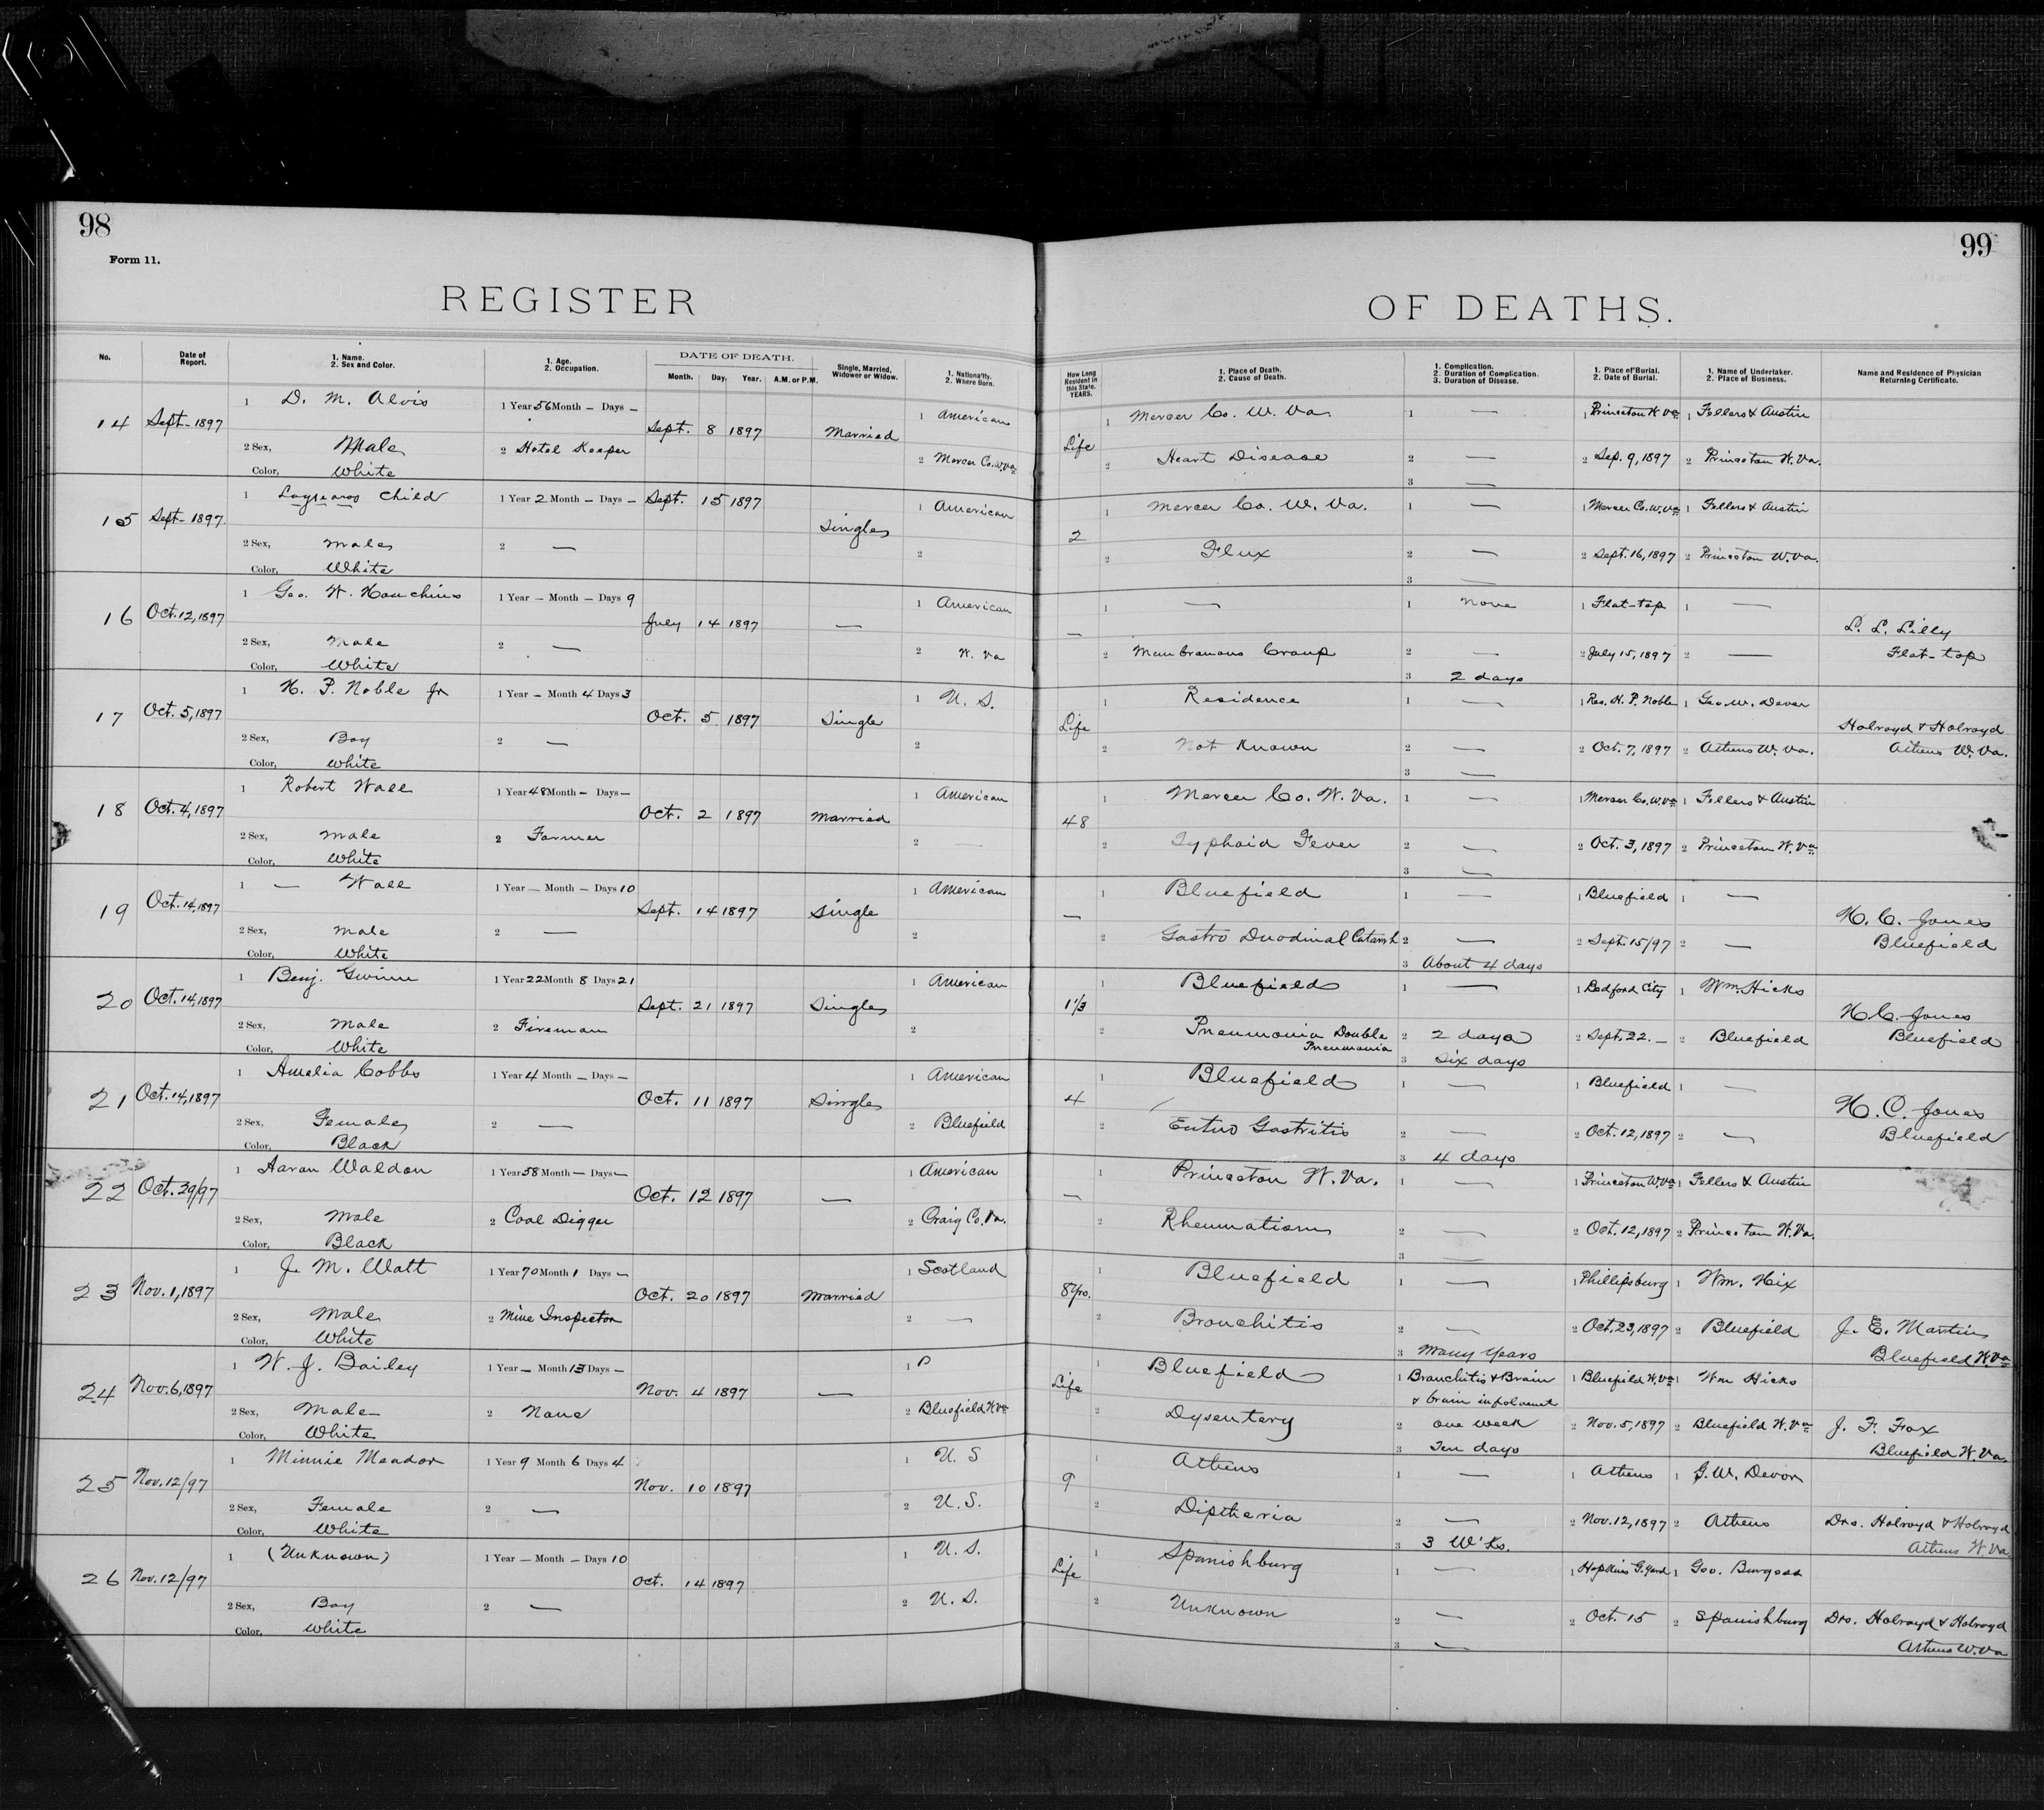 98
Form 11.
REGISTER
99
OF DEATHS.
No. Date of Report. 1. Name. 2. Sex and Color. 1. Age. 2. Occupation. DATE OF DEATH. Month. Day. Year. A.M. or P.M. Single, Married, Widower or Widow. 1. Nationality. 2. Where Born. How Long Resident in this State. YEARS. 1. Place of Death. 2. Cause of Death. 1. Complication. 2. Duration of Complication. 3. Duration of Disease. 1. Place of Burial. 2. Date of Burial. 1. Name of Undertaker. 2. Place of Business. Name and Residence of Physician Returning Certificate.
1 D. M. Alvis 1 Year 56 Month – Days – 1 American 1 Mercer Co. W. Va. 1 — 1 Princeton W Va 1 Fellers & Austin
14 Sept – 1897 Sept. 8 1897 Married Life
2 Sex, Male 2 Hotel Keeper 2 Mercer Co. W. Va. 2 Heart Disease 2 — 2 Sep. 9, 1897 2 Princeton W. Va.
Color, White 3 —
1 child 1 Year 2 Month – Days – 1 American 1 Mercer Co. W. Va. 1 — 1 Mercer Co. W. Va 1 Fellers & Austin
15 Sept – 1897. Sept. 15 1897 Single 2
2 Sex, Male 2 — 2 2 Flux 2 — 2 Sept. 16, 1897 2 Princeton W. Va.
Color, White 3 —
1 Geo. W. Houchins 1 Year – Month – Days 9 1 American 1 — 1 None 1 Flat-top 1 —
16 Oct. 12, 1897 July 14 1897 — — L. L. Lilly
2 Sex, Male 2 — 2 W. Va 2 Membranous Croup 2 — 2 July 15, 1897 2 — Flat-top
Color, White 3 2 days
1 H. P. Noble Jr 1 Year – Month 4 Days 3 1 U. S. 1 Residence 1 — 1 Res. H. P. Noble 1 Geo. W. Dever
17 Oct. 5, 1897 Oct. 5 1897 Single Life Holroyd & Holroyd
2 Sex, Boy 2 — 2 2 Not Known 2 — 2 Oct. 7, 1897 2 Athens W. Va. Athens W. Va.
Color, White 3 —
1 Robert Wall 1 Year 48 Month – Days – 1 American 1 Mercer Co. W. Va. 1 — 1 Mercer Co. W. Va 1 Fellers & Austin
18 Oct. 4, 1897 Oct. 2 1897 Married 48
2 Sex, Male 2 Farmer 2 — 2 Typhoid Fever 2 — 2 Oct. 3, 1897 2 Princeton W. Va
Color, White 3 —
1 — Wall 1 Year – Month – Days 10 1 American 1 Bluefield 1 — 1 Bluefield 1 —
19 Oct. 14, 1897 Sept. 14 1897 Single — H. C. Jones
2 Sex, Male 2 — 2 2 Gastro Duodinal Catarrh 2 — 2 Sept. 15/97 2 — Bluefield
Color, White 3 About 4 days
1 Benj. Gwinn 1 Year 22 Month 8 Days 21 1 American 1 Bluefield 1 — 1 Bedford City 1 Wm. Hicks
20 Oct. 14, 1897 Sept. 21 1897 Single 1 1/3 H. C. Jones
2 Sex, Male 2 Fireman 2 2 Pneumonia Double Pneumonia 2 2 days 2 Sept. 22. – 2 Bluefield Bluefield
Color, White 3 Six days
1 Amelia Cobbs 1 Year 4 Month – Days – 1 American 1 Bluefield 1 — 1 Bluefield 1 —
21 Oct. 14, 1897 Oct. 11 1897 Single 4 H. C. Jones
2 Sex, Female 2 — 2 Bluefield 2 Gastritis 2 — 2 Oct. 12, 1897 2 — Bluefield
Color, Black 3 4 days
1 Aaron Waldon 1 Year 58 Month – Days – 1 American 1 Princeton W. Va. 1 — 1 Princeton W. Va 1 Fellers & Austin
22 Oct. 29/97 Oct. 12 1897 — —
2 Sex, Male 2 Coal Digger 2 Craig Co. Va. 2 Rheumatism 2 — 2 Oct. 12, 1897 2 Princeton W. Va.
Color, Black 3 —
1 J. M. Watt 1 Year 70 Month 1 Days – 1 Scotland 1 Bluefield 1 — 1 Phillipsburg 1 Wm. Hix
23 Nov. 1, 1897 Oct. 20 1897 Married 8 yrs.
2 Sex, Male 2 Mine Inspector 2 — 2 Bronchitis 2 — 2 Oct. 23, 1897 2 Bluefield J. E. Martin
Color, White 3 Many Years Bluefield W Va
1 W. J. Bailey 1 Year – Month 13 Days – 1 1 Bluefield 1 Bronchitis & Brain & brain involvment 1 Bluefield W. Va 1 Wm Hicks
24 Nov. 6, 1897 Nov. 4 1897 — Life
2 Sex, Male 2 None 2 Bluefield W Va 2 Dysentery 2 one week 2 Nov. 5, 1897 2 Bluefield W. Va J. F. Fox
Color, White 3 Ten days Bluefield W. Va.
1 Minnie Meador 1 Year 9 Month 6 Days 4 1 U. S 1 Athens 1 — 1 Athens 1 G. W. Devor
25 Nov. 12/97 Nov. 10 1897 9
2 Sex, Female 2 — 2 U. S. 2 Diptheria 2 — 2 Nov. 12, 1897 2 Athens Drs. Holroyd & Holroyd
Color, White 3 3 W'ks. Athens W. Va.
1 (Unknown) 1 Year – Month – Days 10 1 U. S. 1 Spanishburg 1 — 1 Hopkins G. Yard 1 Geo. Burgess
26 Nov. 12/97 Oct. 14 1897 Life
2 Sex, Boy 2 — 2 U. S. 2 Unknown 2 — 2 Oct. 15 2 Spanishburg Drs. Holroyd & Holroyd
Color, White 3 — Athens W. Va